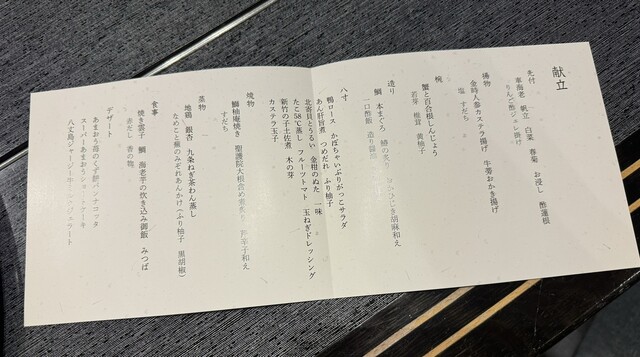 献立
先付
車海老 帆立 白菜 春菊 お浸し 酢蓮根
りんご酢ジュレ掛け
揚物
金時人参カステラ揚げ 牛蒡おかき揚げ
塩 すだち
椀
蟹と百合根しんじょう
若芽 椎茸 黄柚子
造り
鯛 本まぐろ 鰆の炙り 胡麻和え
一口酢飯 造り醤油
八寸
鴨ロース かぼちゃいぶりがっこサラダ
あん肝旨煮 つめだれ ふり柚子
北寄貝とうるい 金柑のぬた 一味
たこ58℃蒸し フルーツトマト 玉ねぎドレッシング
新竹の子土佐煮 木の芽
カステラ玉子
焼物
鰤柚庵焼き 聖護院大根含め煮炙り 芥子和え
すだち
蒸物
地鶏 銀杏 九条ねぎ茶わん蒸し
なめこと蕪のみぞれあんかけ(ふり柚子 黒胡椒)
食事
焼き雲子 鯛 海老芋の炊き込み御飯 みつば
赤だし 香の物
デザート
あまおう苺のくず餅パンナコッタ
スーパーあまおうショートケーキ
八丈島ジャージー ジェラート